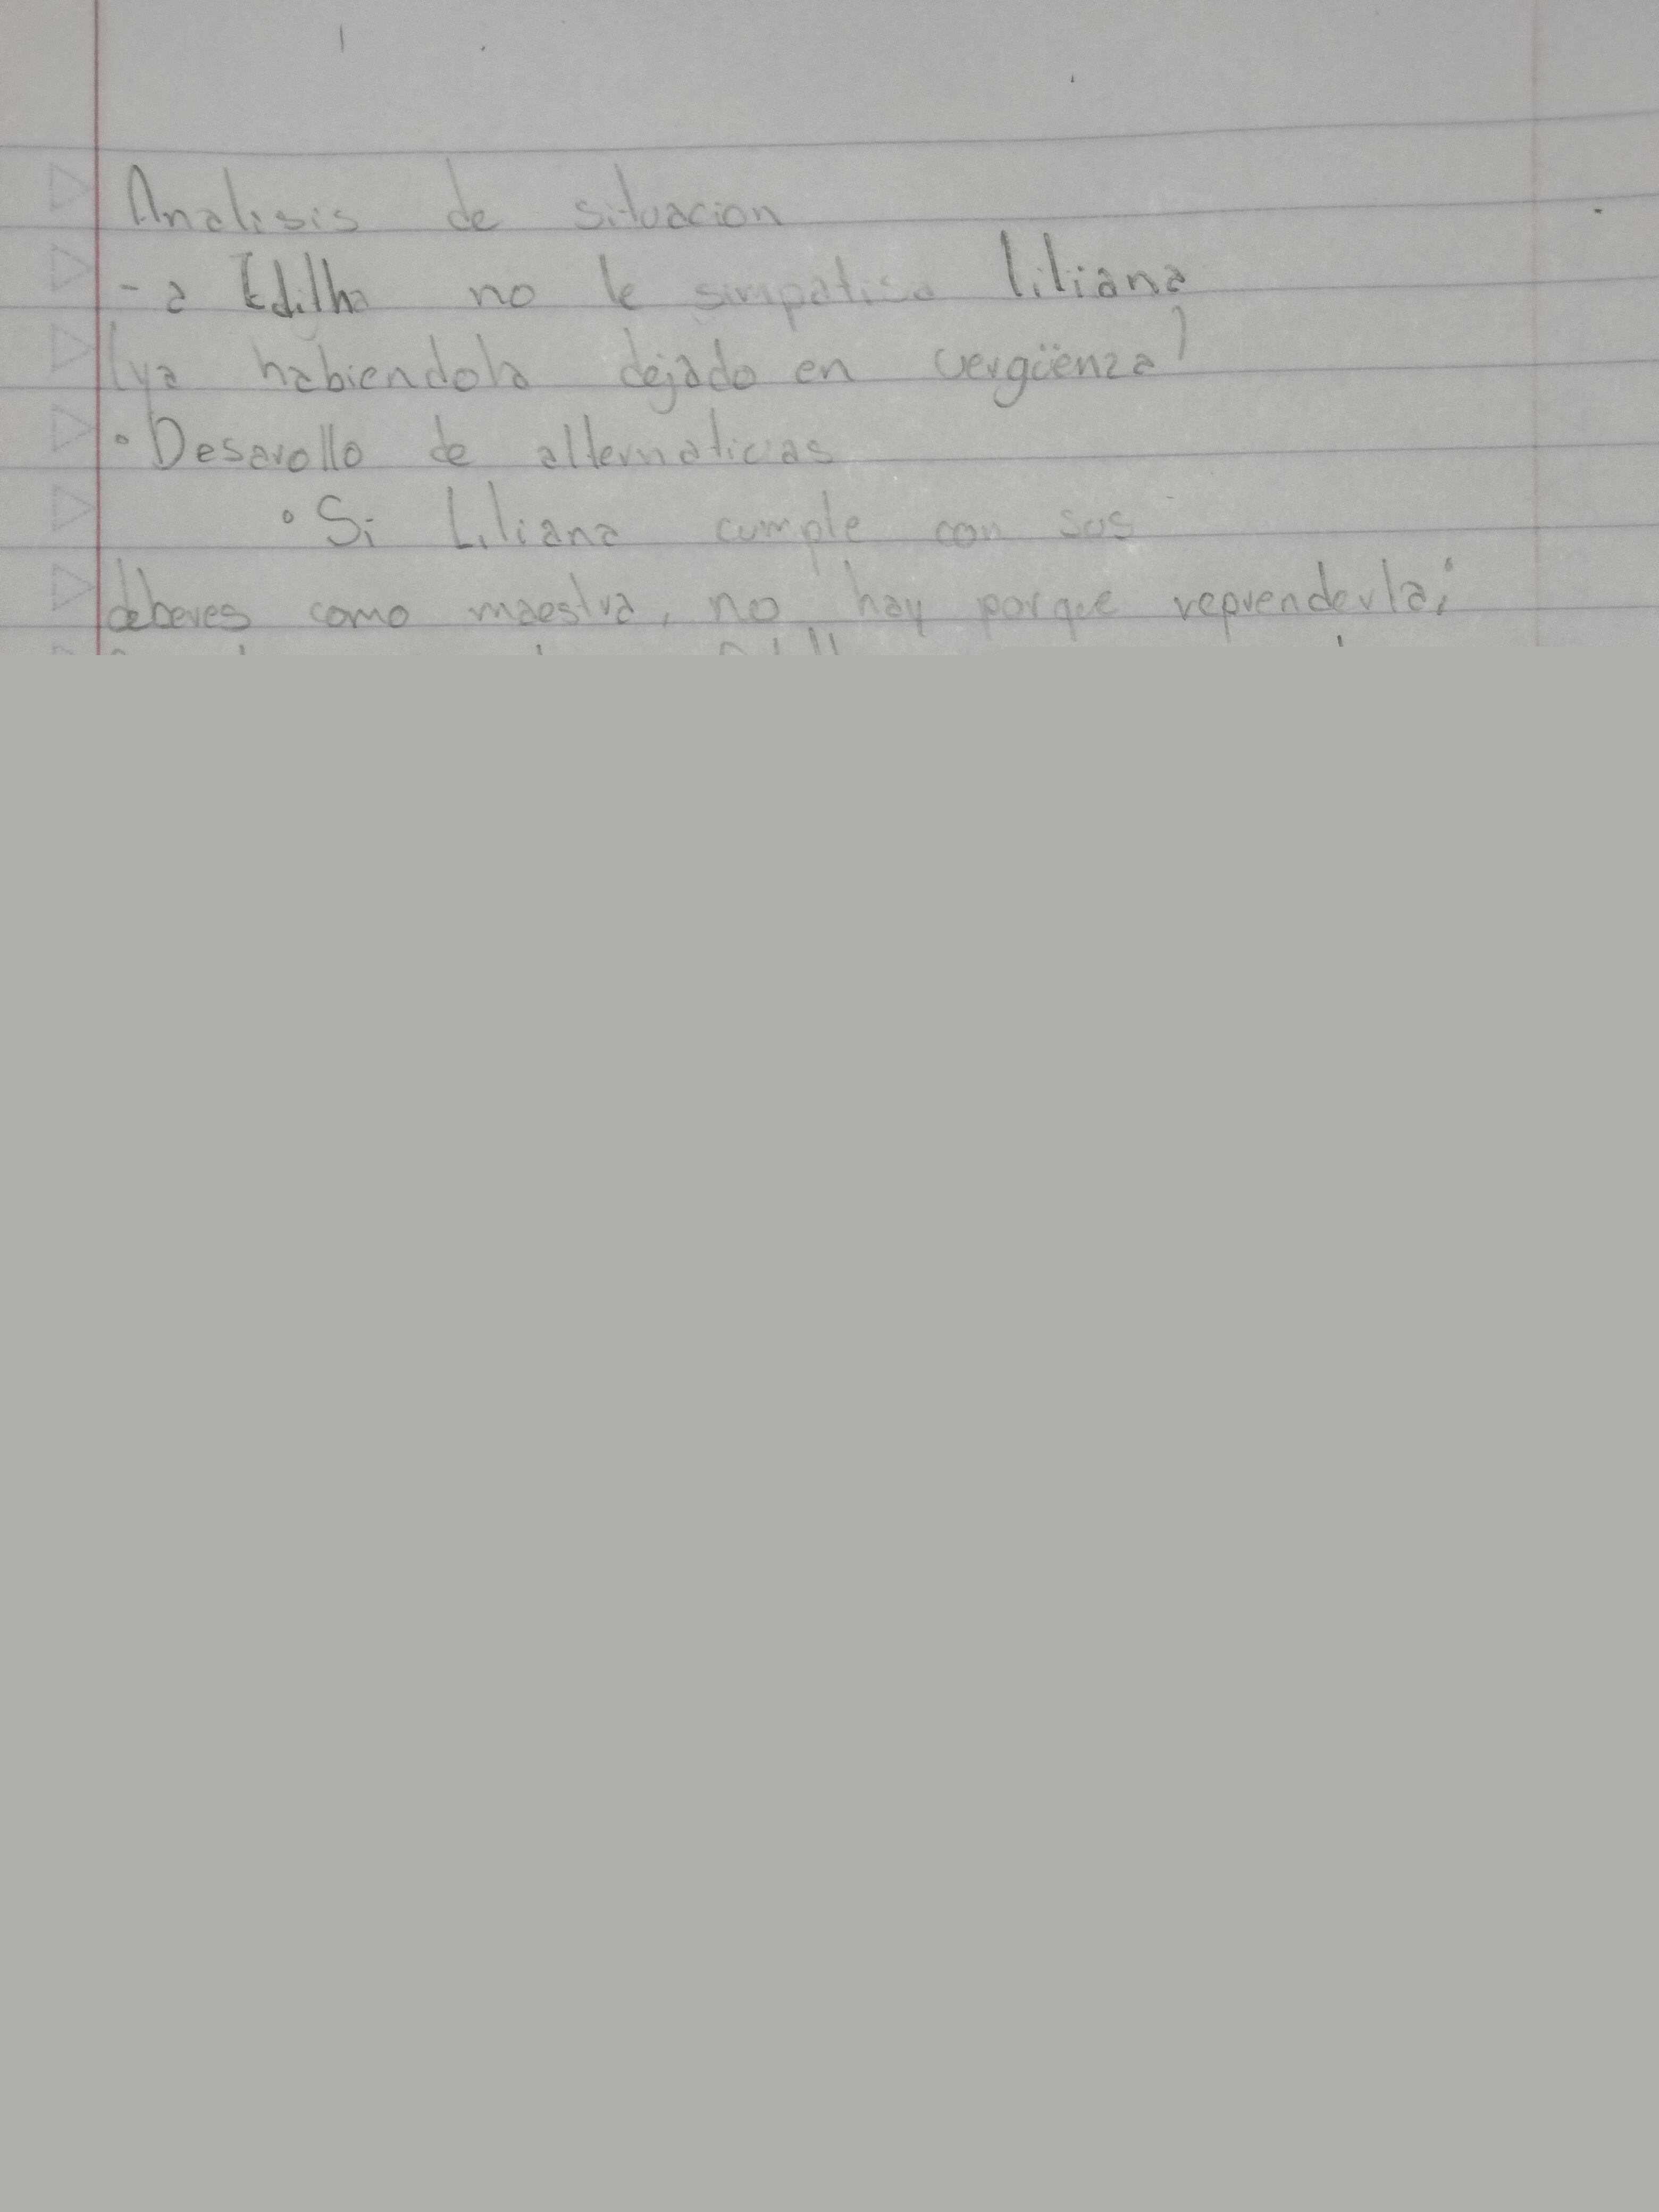 Analisis de situacion
- a Edilha no le simpatisa liliana
(ya habiendola dejado en vergüenza)
° Desarollo de alternativas
° Si Liliana cumple con sus
deberes como maestra, no hay porque reprenderla;